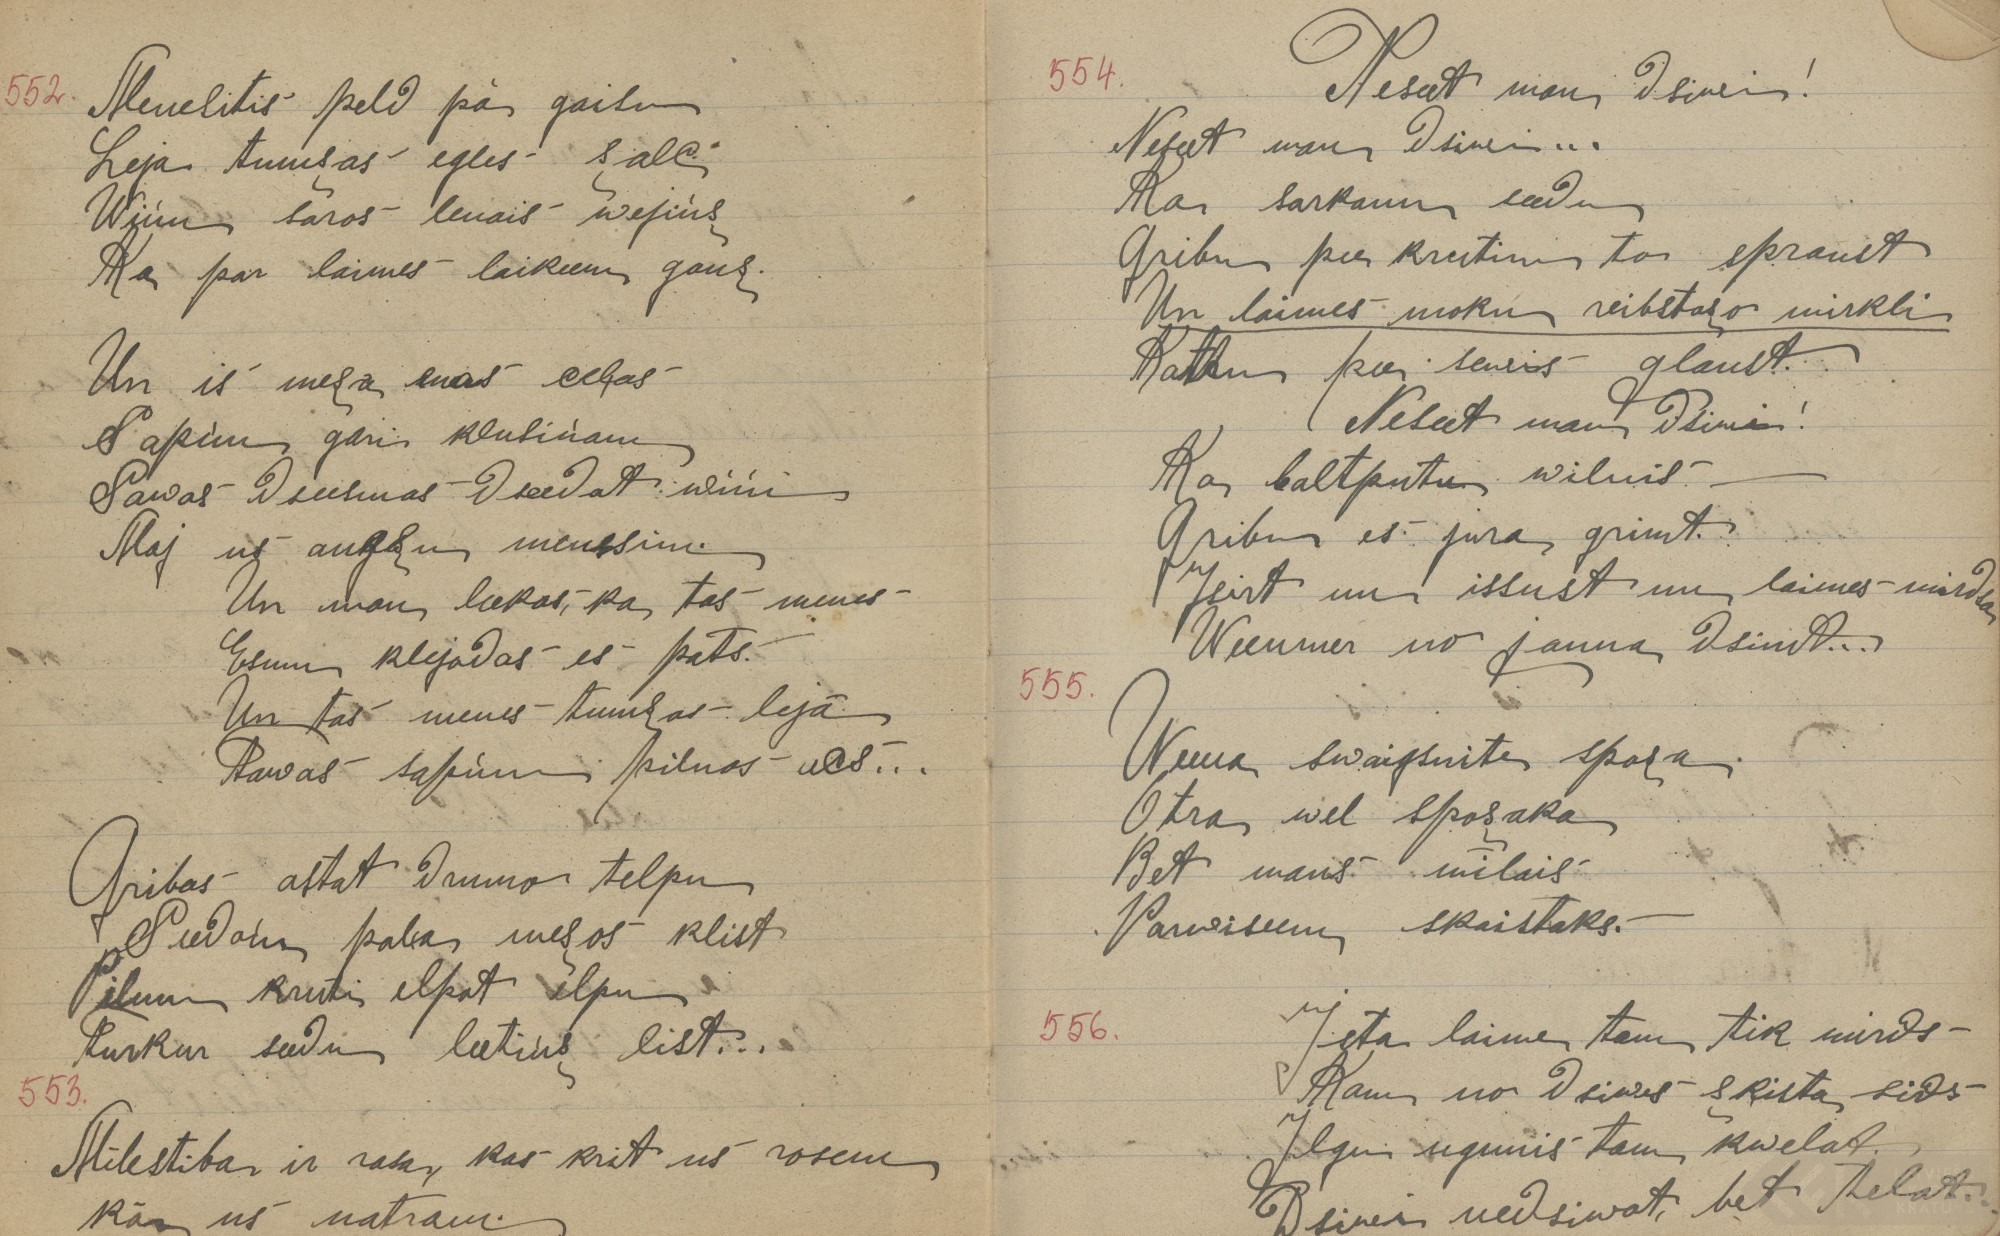 552.
Menesitis peld pa gaisu
Leja tumşas egles şalc
Wiņu saros lenais wejiņş
Ka par laimes laikeem gauş.
Un is meşa enas ceļas
Sapņu gari klusinam
Sawas dseesmas dseedat wiņi
Maj us augşu menessim.
Un man leekas, ka tas menes
Esmu klejodas es pats.
Un tas menes tumşas lejā
Tawas sapņu pilnas acs...
Gribas astat drumo telpu
Seedoņa palsa meşos klist
Pilnu kruti elpat elpu
Turkur seedu leetiņş list...
553.
Milestiba ir rasa, kas krit us rosem
kā us natram.
554.
Neseet man dsiwi!
Neseet man dsiwi...
Ka sarkanu seedu
Gribu pee krutim to spraust
Un laimes moku reibstoşo mirkli
Katru pee sewis glaust.
Neseet man dsiwi!
Ka baltputu wilnis —
Gribu es jura grimt.
Jsirt un issust un laimes mirdsa
Weenmer no jauna dsimt...
555.
Weena swaigsnite spoşa
Otra wel spoşaka
Bet mans mīlais
Parwiseem skaistaks.—
556.
Jsta laime tam tik mirds
Kam no dsiwes şkista sids
Ilgu ugunis tam kwelat.
Dsiwi nedsiwat, bet telat.